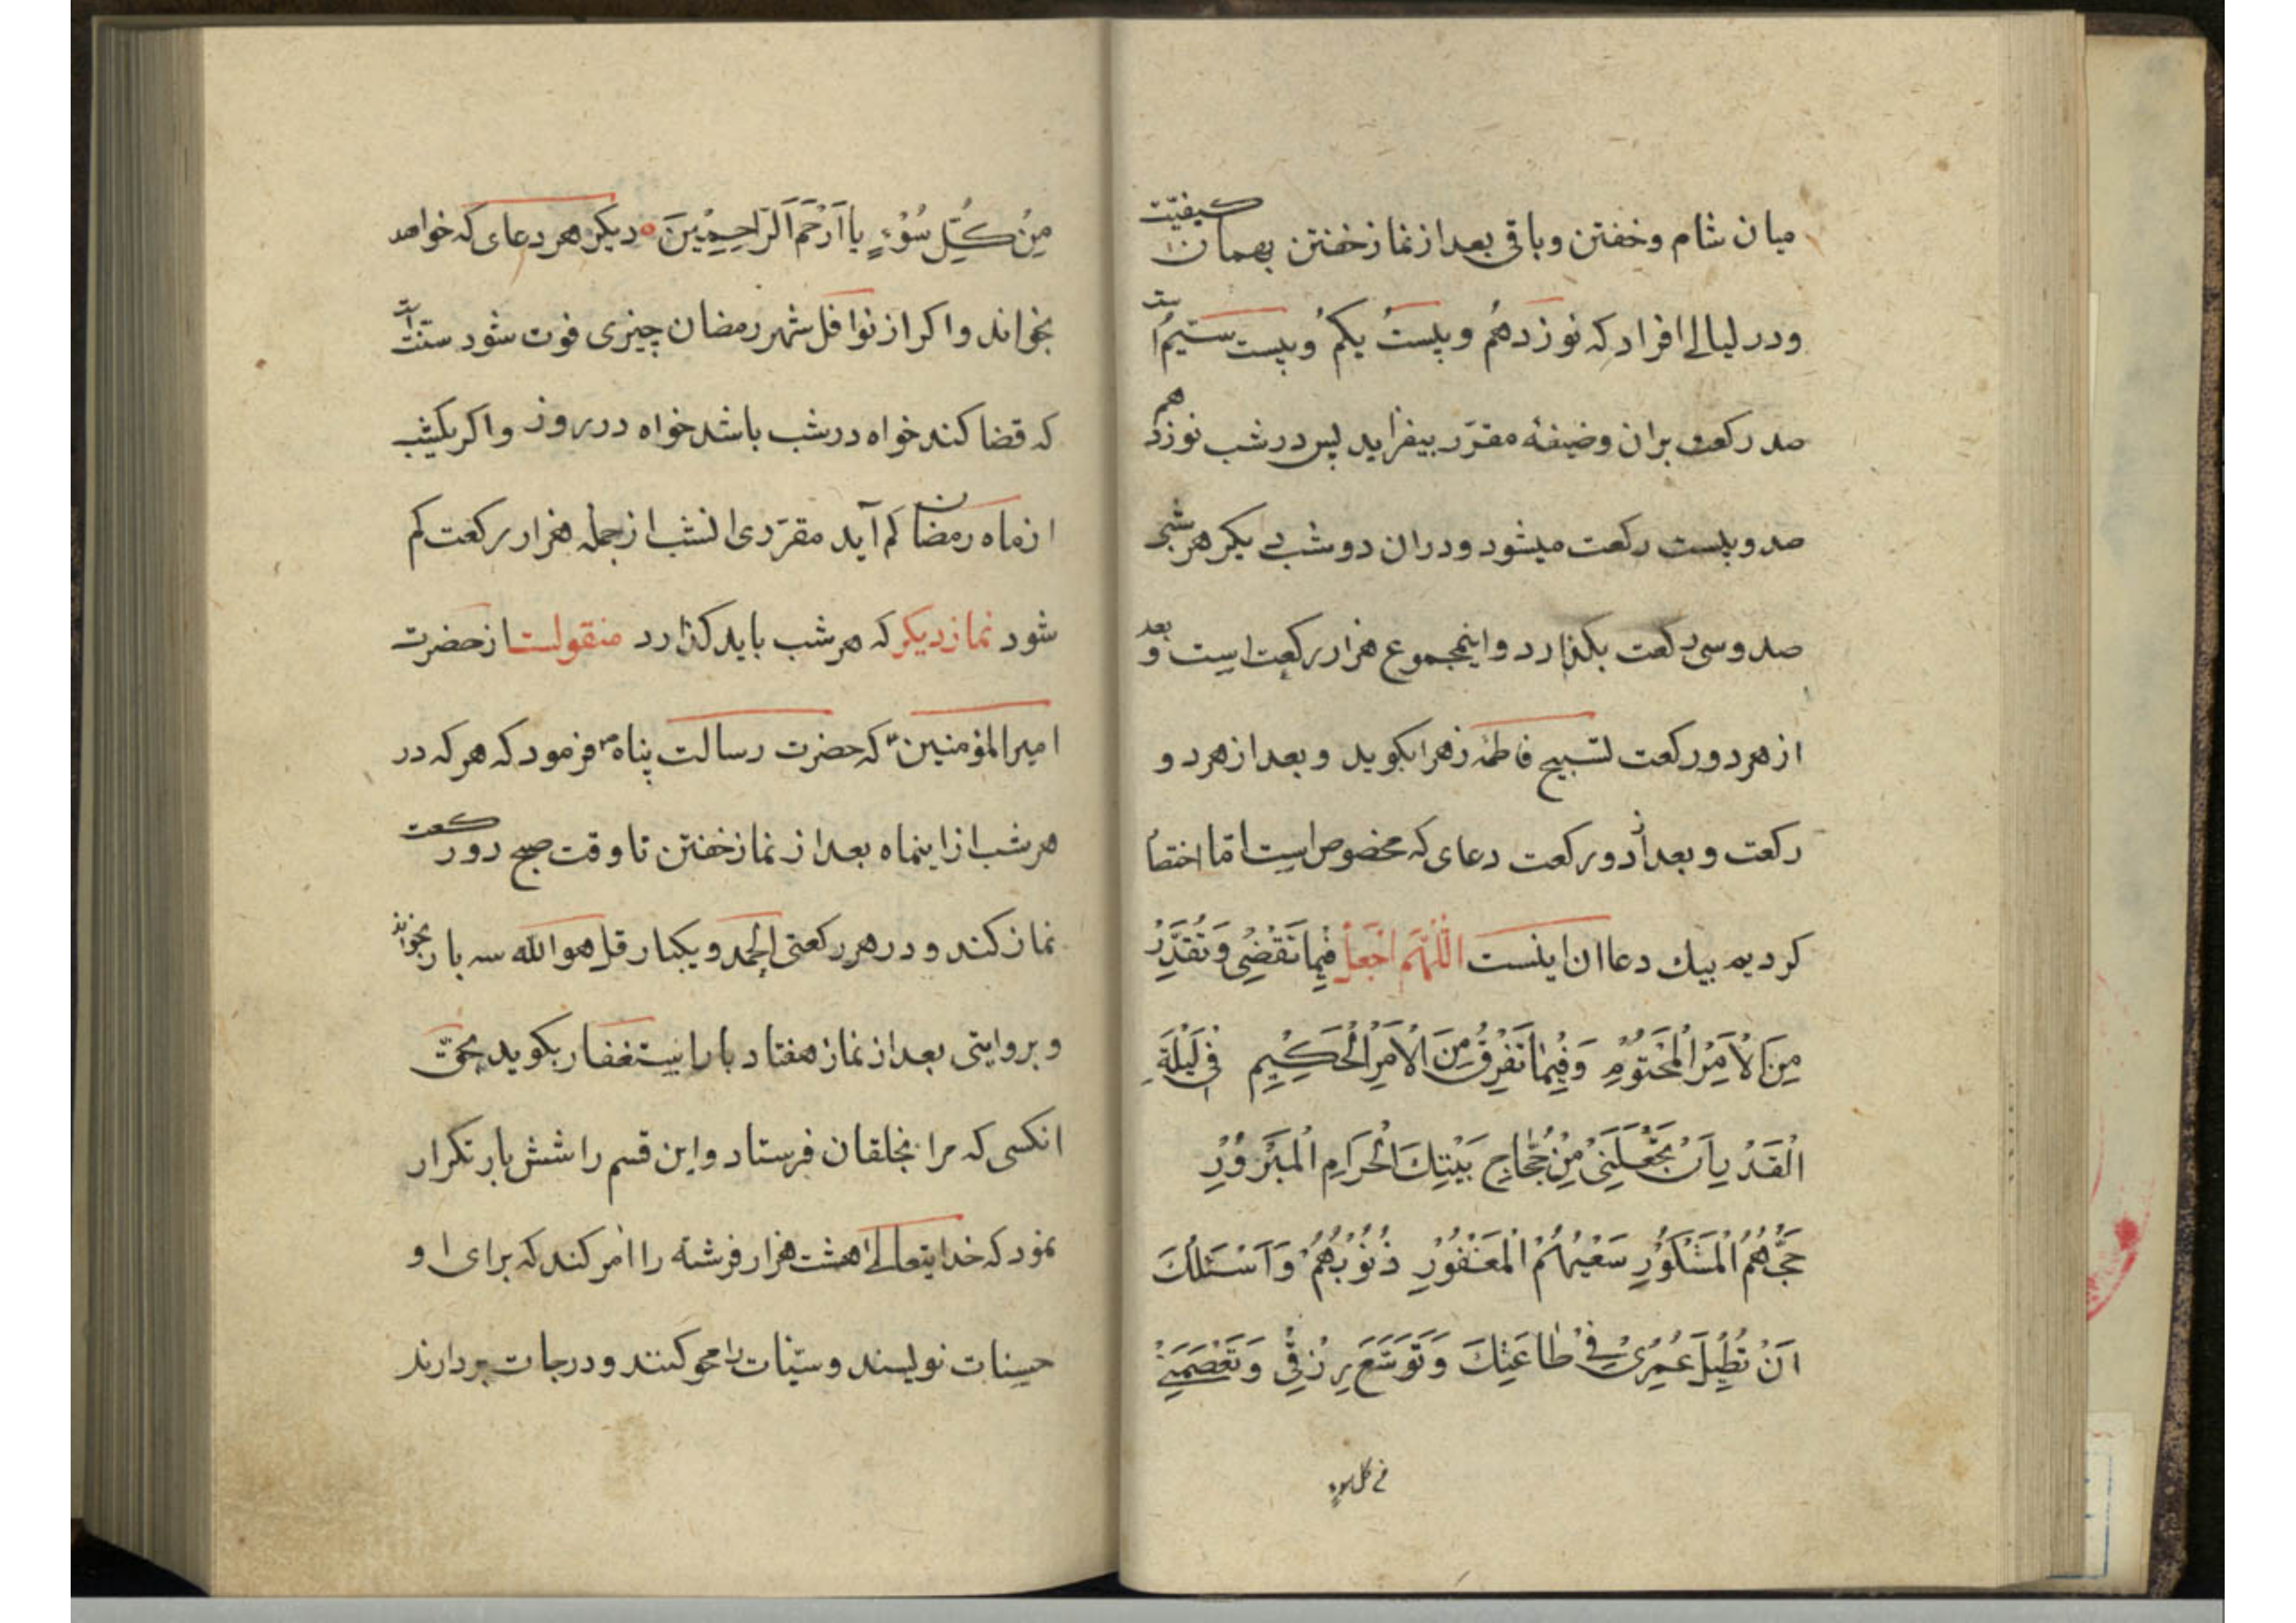 میان شام و خفتن و باقی بعد از نماز خفتن بهمان کیفیّت
و در لیالی افراد که نوزدهُم و بیستُ یکمُ و بیست سیّم است
صد رکعت بران وضیفه مقرّر بیفزاید پس در شب نوزدهم
صد و بیست رکعت میشود و در ان دو شب دیکر هر شبی
صد و سی رکعت بکذارد و اینمجموع هزار رکعت است و بعد
از هر دو رکعت تسبیح فاطمه زهرا بکوید و بعد از هر دو
رکعت و بعد از دو رکعت دعای که مخصوص است امّا اختصا
کردیم بیک دعا ان اینست اَللّهُمَّ اجْعَلْ فیِما تَقْضِی وَ تُقَدِّرُ
مِنَ الْاَمْرِ الْمَحْتُوْمِ وَ فِیْما تَفْرِقُ مِنَ الْاَمْرِ الْحَکِیْمِ فِی لَیْلَةِ
الْقَدْرِ اَنْ تَجْعَلَنِیْ مِنْ حُجّاجِ بَیْتِكَ الْحَرامِ الْمَبْرُوْرِ
حَجُّهُمُ الْمَشْکُوْرِ سَعْیُهُمُ الْمَغْفُوْرِ ذُنُوْبُهُمْ وَ اَسْئَلُكَ
اَنْ تُطِیْلَ عُمْرِیْ فِیْ طاعَتِكَ وَ تَوَسَّعَ رِزْقِیْ وَ تَعْصِمَنِیْ
مِنْ کُلِّ سُوْءٍ یا اَرْحَمَ الرّاحِمِیْنَ دیکر هر دعای که خواهد
بخواند و اکر از نوافل شهر رمضان چیزی فوت شود سنّت است
که قضا کند خواه در شب باشد خواه در روز و اکر یکشب
از ماه رمضان کم آید مقرّدی انشب از جمله هزار رکعت کم
شود نماز دیکر که هر شب باید کذارد منقولست از حضرت
امیرالمؤمنین ع که حضرت رسالت پناه ص فرمود که هر که در
هر شب از اینماه بعد از نماز خفتن تا وقت صبح دو رکعت
نماز کند و در هر رکعتی الحمد و یکبار قل هو الله سه بار بخواند
و بروایتی بعد از نماز هفتاد بار استغفار بکوید بحقّ
انکسی که مرا بخلقان فرستاد و این قسم را شش بار تکرار
نمود که خدایتعالی هشت هزار فرشته را امر کند که برای او
حسنات نویسند و سیّئات را محو کنند و درجات بردارند